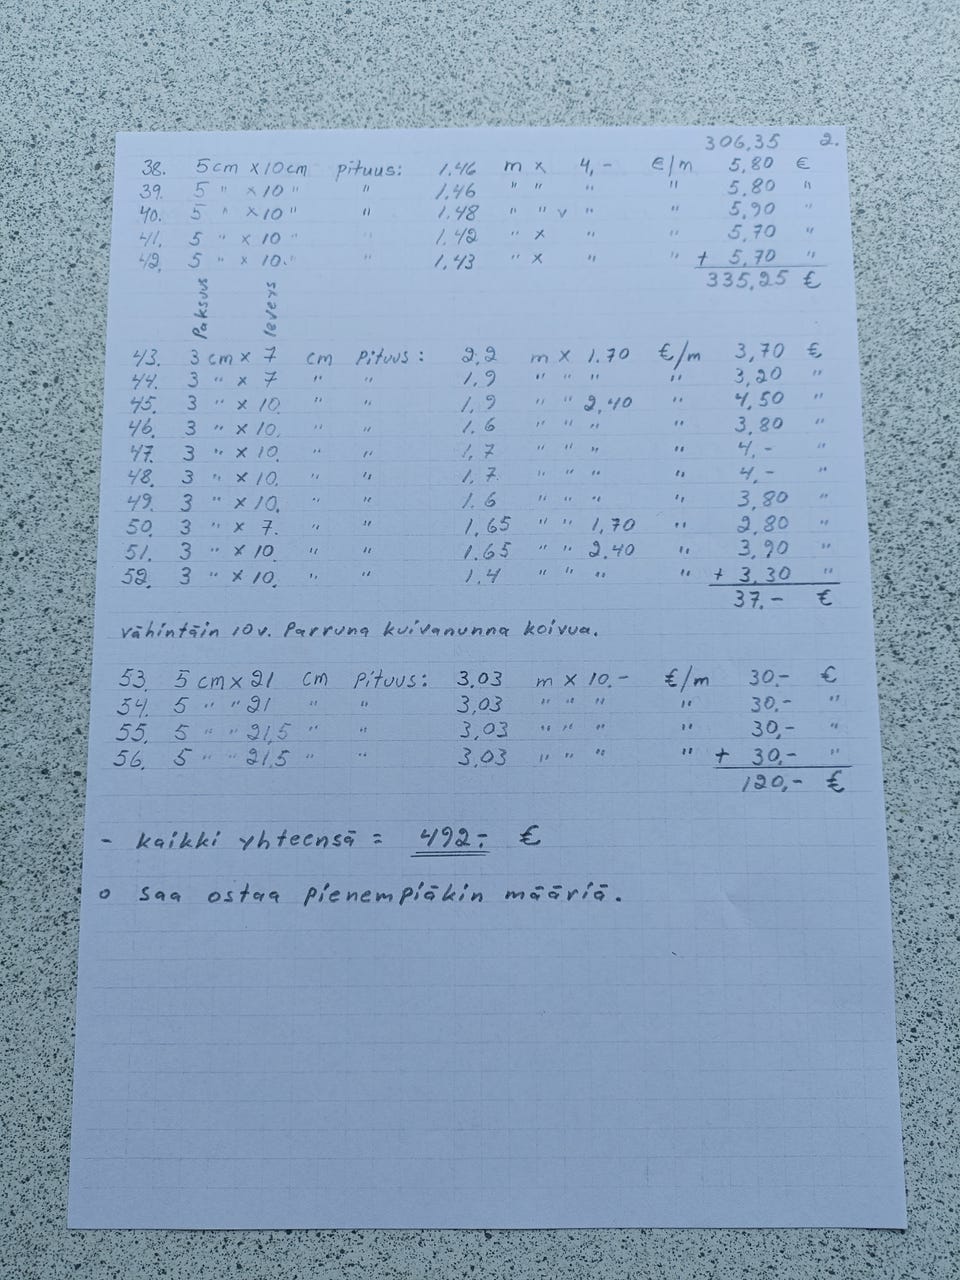 306,35 2.
38. 5cm x 10cm pituus: 1.46 m x 4,- €/m 5,80 €
39. 5 " x 10 " " 1.46 " " " " 5,80 "
40. 5 " x 10 " " 1.48 " " v " " 5,90 "
41. 5 " x 10 " " 1.42 " x " " 5,70 "
42. 5 " x 10." " 1.43 " x " " + 5,70 "
335,25 €
Paksuus leveys
43. 3 cm x 7 cm Pituus: 2.2 m x 1.70 €/m 3,70 €
44. 3 " x 7 " " 1.9 " " " " 3,20 "
45. 3 " x 10. " " 1.9 " " 2,40 " 4,50 "
46. 3 " x 10. " " 1.6 " " " " 3,80 "
47. 3 " x 10. " " 1,7 " " " " 4,- "
48. 3 " x 10. " " 1.7. " " " " 4.- "
49. 3 " x 10. " " 1.6 " " " " 3,80 "
50. 3 " x 7. " " 1,65 " " 1,70 " 2,80 "
51. 3 " x 10 " " 1.65 " " 2.40 " 3,90 "
52. 3 " x 10. " " 1.4 " " " " + 3,30 "
37.- €
vähintäin 10v. Parruna kuivanunna koivua.
53. 5 cm x 21 cm Pituus: 3,03 m x 10.- €/m 30.- €
54. 5 " " 21 " " 3,03 " " " " 30,- "
55. 5 " " 21,5 " " 3,03 " " " " 30,- "
56. 5 " " 21,5 " " 3,03 " " " " + 30,- "
120,- €
- kaikki yhteensä = 492.- €
o saa ostaa pienempiäkin määriä.